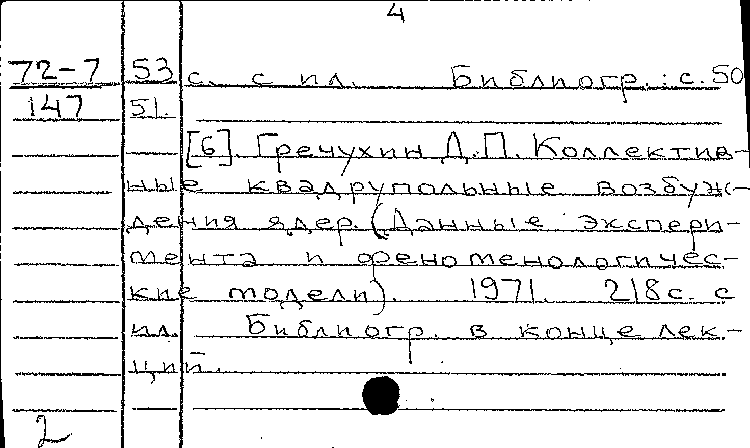 4
72-7 53 с. с ил. Библиогр.: с. 50
147 51.
[6]. Гречухин Д.П. Коллектив-
ные квадрупольные возбуж-
дения ядер. (Данные экспери-
мента и феноменологичес-
кие модели). 1971. 218 с. с
ил. Библиогр. в конце лек-
ций.
2